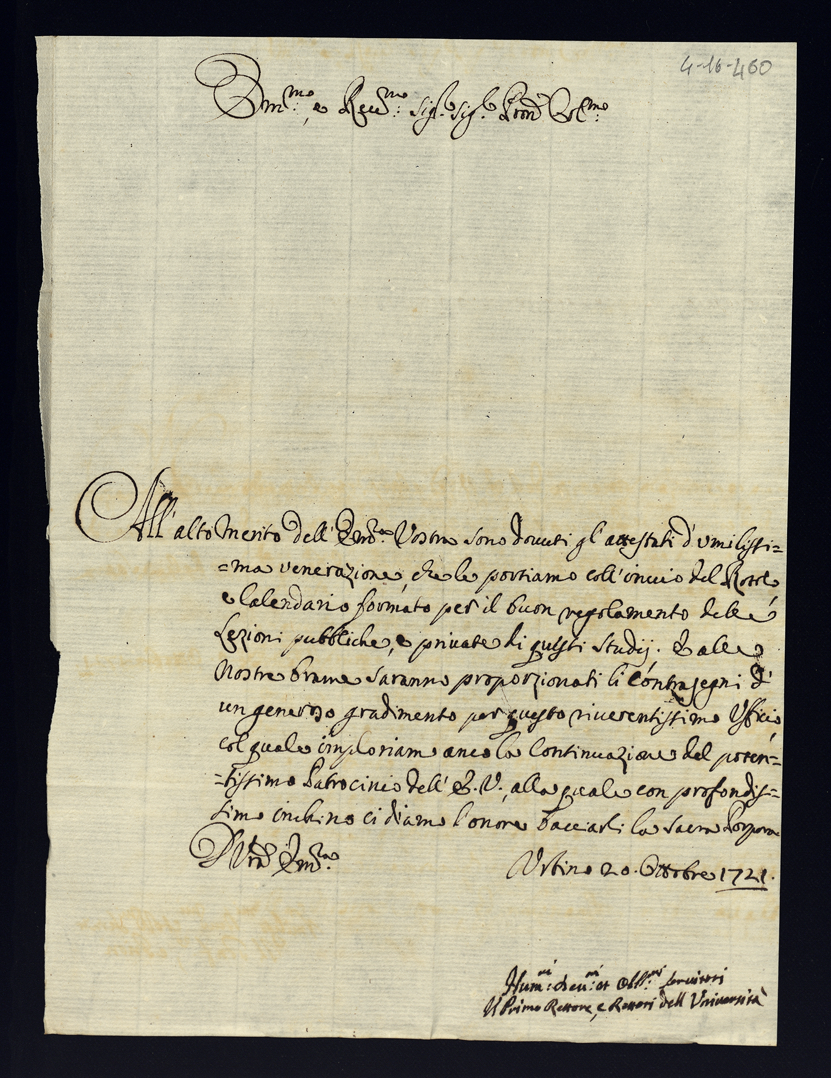 4-16-460
Em.mo e Re.mo Sig.r Sig.r Pron Col.mo
All'alto Merito dell'Em.za Vostra sono dovuti gl'attestati d'umilissi=
=ma venerazione, che le portiamo coll'invio del Rotolo
e Calendario formato per il buon regolamento delle
Lezioni pubbliche, e private di questi Studij. E alle
Nostre brame saranno proporzionati li Contrasegni d'
un generoso gradimento per questo riverentissimo Ufficio
col quale imploriamo anco la Continuazione del poten=
=tissimo Patrocinio dell'E.V., alla quale con profondis=
simo inchino ci diamo l'onore bacciarli la Sacra Porpora
D V.ra Em.za
Urbino 20. Ottobre 1721.
Hum.mi: deu.mi: et Obl.mi servitori
Il Primo Rettore, e Rettori dell'Università